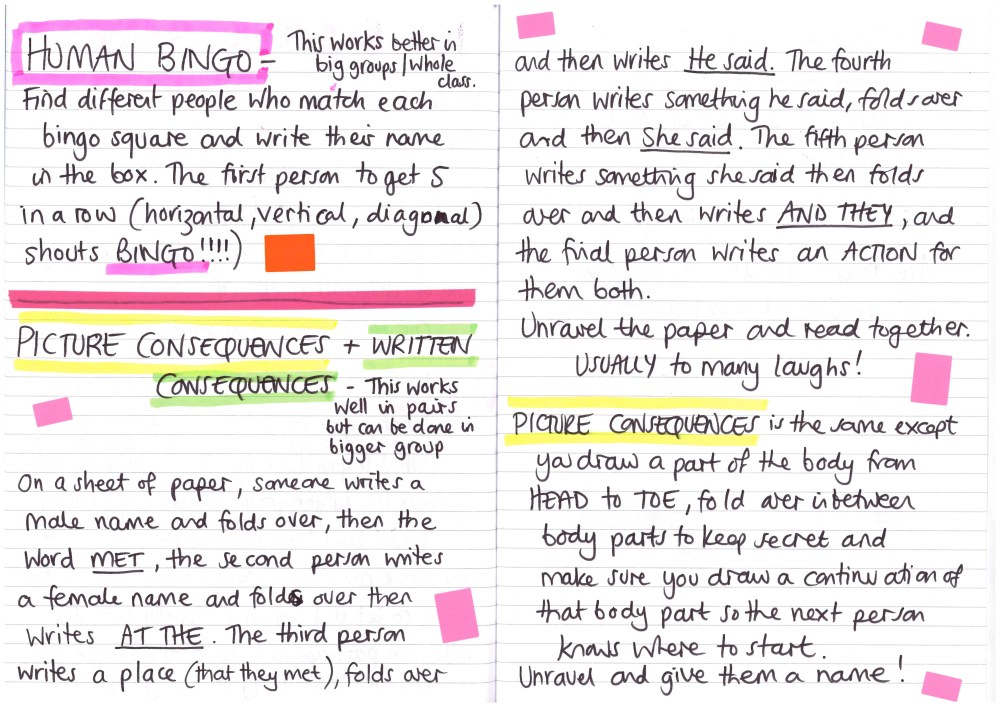 HUMAN BINGO - This works better in
big groups/whole
class.
Find different people who match each
bingo square and write their name
in the box. The first person to get 5
in a row (horizontal, vertical, diagonal)
shouts BINGO!!!!)
PICTURE CONSEQUENCES + WRITTEN
CONSEQUENCES - This works
well in pairs
but can be done in
bigger group
On a sheet of paper, someone writes a
male name and folds over, then the
word MET, the second person writes
a female name and folds over then
writes AT THE. The third person
writes a place (that they met), folds over
and then writes He said. The fourth
person writes something he said, folds over
and then She said. The fifth person
writes something she said then folds
over and then writes AND THEY, and
the final person writes an ACTION for
them both.
Unravel the paper and read together.
USUALLY to many laughs!
PICTURE CONSEQUENCES is the same except
you draw a part of the body from
HEAD to TOE, fold over inbetween
body parts to keep secret and
make sure you draw a continuation of
that body part so the next person
knows where to start.
Unravel and give them a name!